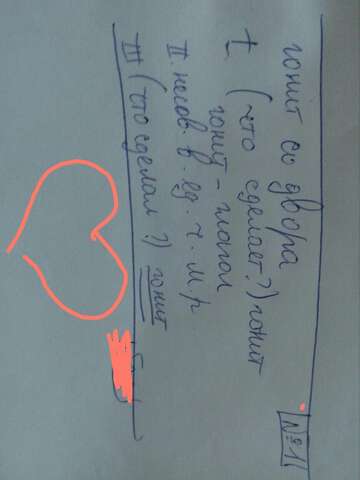 №1
гонит со двора
I (что сделает?) гонит
гонит - глагол
II. несов. в. ед. ч. м. р
III (что сделал?) гонит